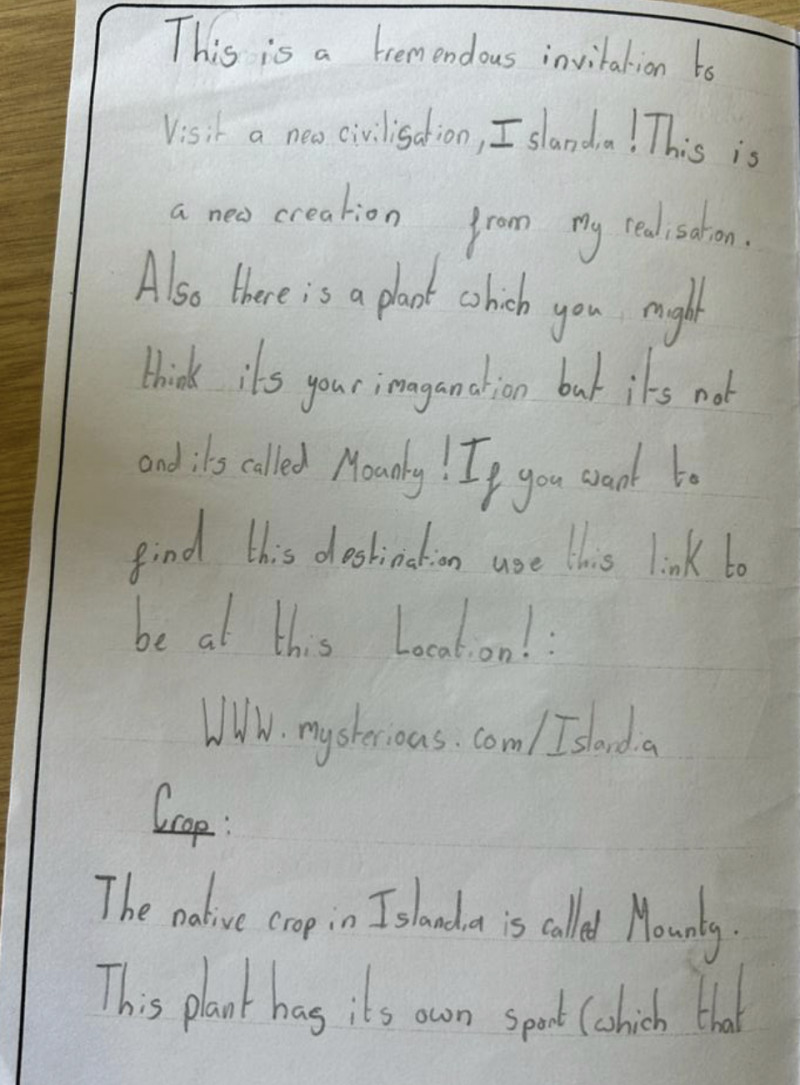 This is a tremendous invitation to
Visit a new civilisation, Islandia! This is
a new creation from my realisation.
Also there is a plant which you might
think its your imaganation but its not
and its called Mounty! If you want to
find this destination use this link to
be at this Location!:
WWW.mysterious.com/Islandia
Crop:
The native crop in Islandia is called Mounty.
This plant has its own sport (which that